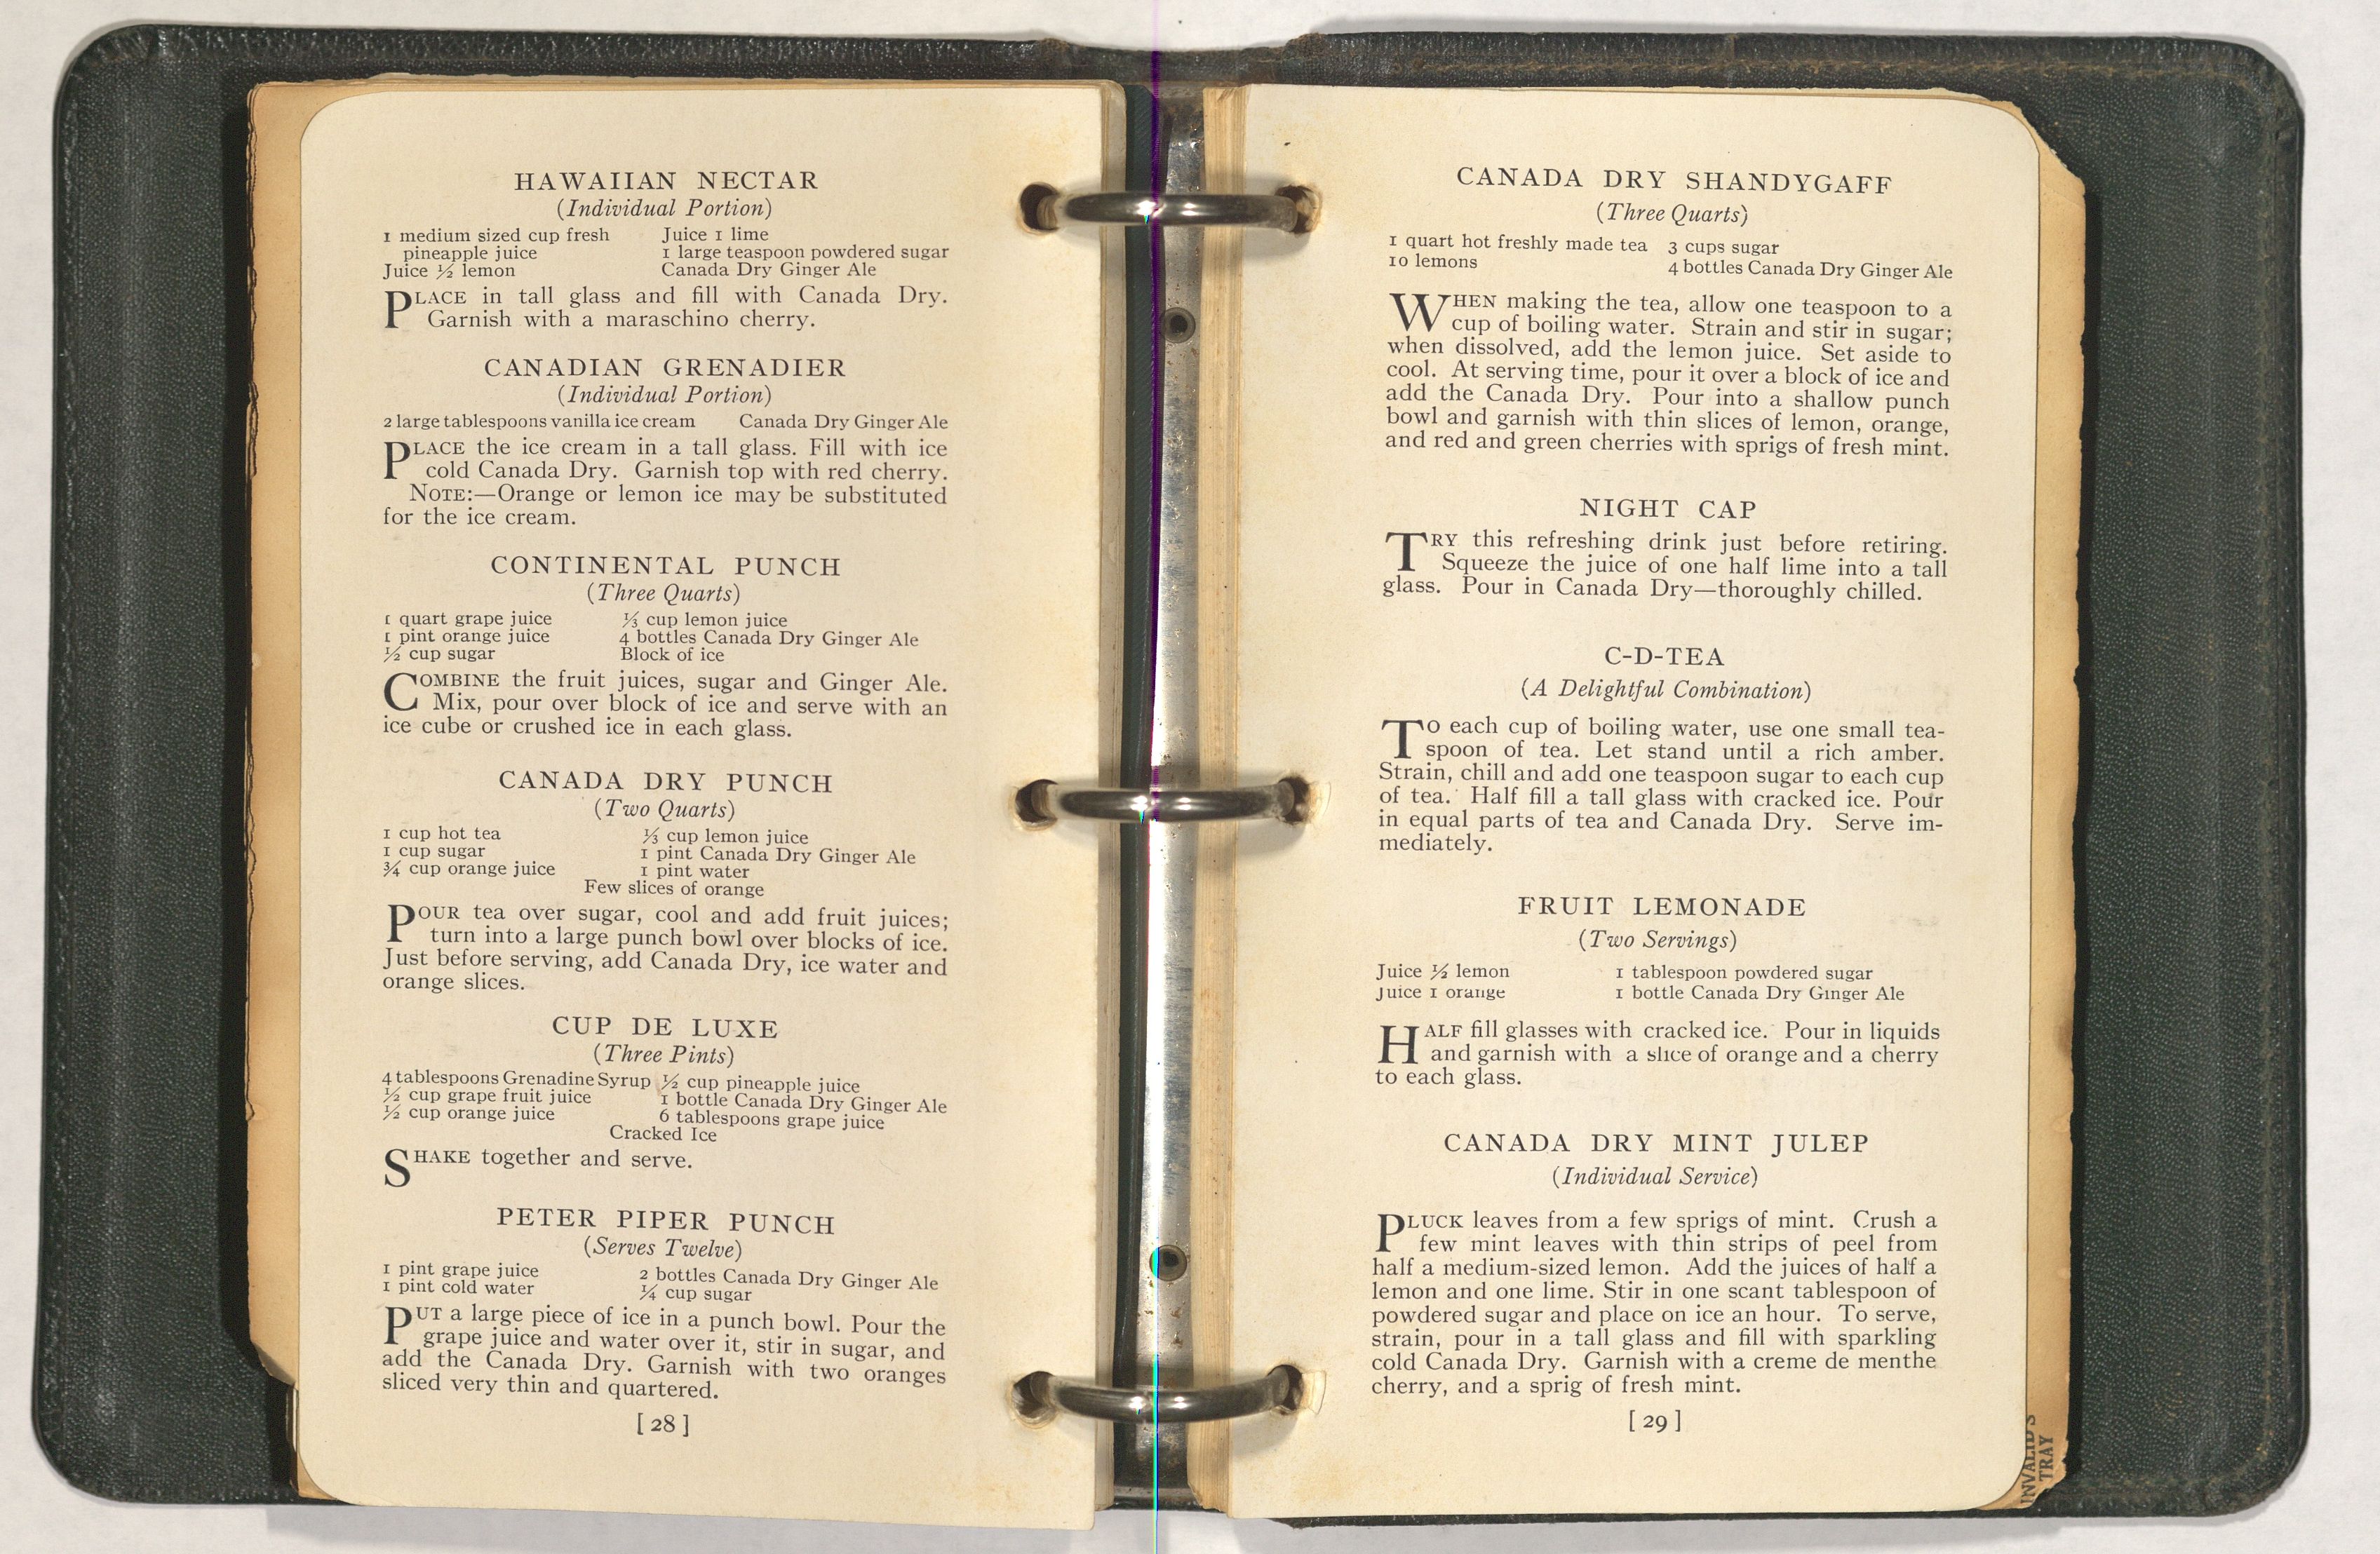 HAWAIIAN NECTAR
(Individual Portion)
1 medium sized cup fresh
pineapple juice
Juice ½ lemon
Juice 1 lime
1 large teaspoon powdered sugar
Canada Dry Ginger Ale
PLACE in tall glass and fill with Canada Dry.
Garnish with a maraschino cherry.
CANADIAN GRENADIER
(Individual Portion)
2 large tablespoons vanilla ice cream Canada Dry Ginger Ale
PLACE the ice cream in a tall glass. Fill with ice
cold Canada Dry. Garnish top with red cherry.
NOTE:—Orange or lemon ice may be substituted
for the ice cream.
CONTINENTAL PUNCH
(Three Quarts)
1 quart grape juice
1 pint orange juice
½ cup sugar
⅓ cup lemon juice
4 bottles Canada Dry Ginger Ale
Block of ice
COMBINE the fruit juices, sugar and Ginger Ale.
Mix, pour over block of ice and serve with an
ice cube or crushed ice in each glass.
CANADA DRY PUNCH
(Two Quarts)
1 cup hot tea
1 cup sugar
¾ cup orange juice
⅓ cup lemon juice
1 pint Canada Dry Ginger Ale
1 pint water
Few slices of orange
POUR tea over sugar, cool and add fruit juices;
turn into a large punch bowl over blocks of ice.
Just before serving, add Canada Dry, ice water and
orange slices.
CUP DE LUXE
(Three Pints)
4 tablespoons Grenadine Syrup
½ cup grape fruit juice
½ cup orange juice
½ cup pineapple juice
1 bottle Canada Dry Ginger Ale
6 tablespoons grape juice
Cracked Ice
SHAKE together and serve.
PETER PIPER PUNCH
(Serves Twelve)
1 pint grape juice
1 pint cold water
2 bottles Canada Dry Ginger Ale
¼ cup sugar
PUT a large piece of ice in a punch bowl. Pour the
grape juice and water over it, stir in sugar, and
add the Canada Dry. Garnish with two oranges
sliced very thin and quartered.
[ 28 ]
CANADA DRY SHANDYGAFF
(Three Quarts)
1 quart hot freshly made tea
10 lemons
3 cups sugar
4 bottles Canada Dry Ginger Ale
WHEN making the tea, allow one teaspoon to a
cup of boiling water. Strain and stir in sugar;
when dissolved, add the lemon juice. Set aside to
cool. At serving time, pour it over a block of ice and
add the Canada Dry. Pour into a shallow punch
bowl and garnish with thin slices of lemon, orange,
and red and green cherries with sprigs of fresh mint.
NIGHT CAP
TRY this refreshing drink just before retiring.
Squeeze the juice of one half lime into a tall
glass. Pour in Canada Dry—thoroughly chilled.
C-D-TEA
(A Delightful Combination)
TO each cup of boiling water, use one small tea-
spoon of tea. Let stand until a rich amber.
Strain, chill and add one teaspoon sugar to each cup
of tea. Half fill a tall glass with cracked ice. Pour
in equal parts of tea and Canada Dry. Serve im-
mediately.
FRUIT LEMONADE
(Two Servings)
Juice ½ lemon
Juice 1 orange
1 tablespoon powdered sugar
1 bottle Canada Dry Ginger Ale
HALF fill glasses with cracked ice. Pour in liquids
and garnish with a slice of orange and a cherry
to each glass.
CANADA DRY MINT JULEP
(Individual Service)
PLUCK leaves from a few sprigs of mint. Crush a
few mint leaves with thin strips of peel from
half a medium-sized lemon. Add the juices of half a
lemon and one lime. Stir in one scant tablespoon of
powdered sugar and place on ice an hour. To serve,
strain, pour in a tall glass and fill with sparkling
cold Canada Dry. Garnish with a creme de menthe
cherry, and a sprig of fresh mint.
[ 29 ]
INVALID'S
TRAY